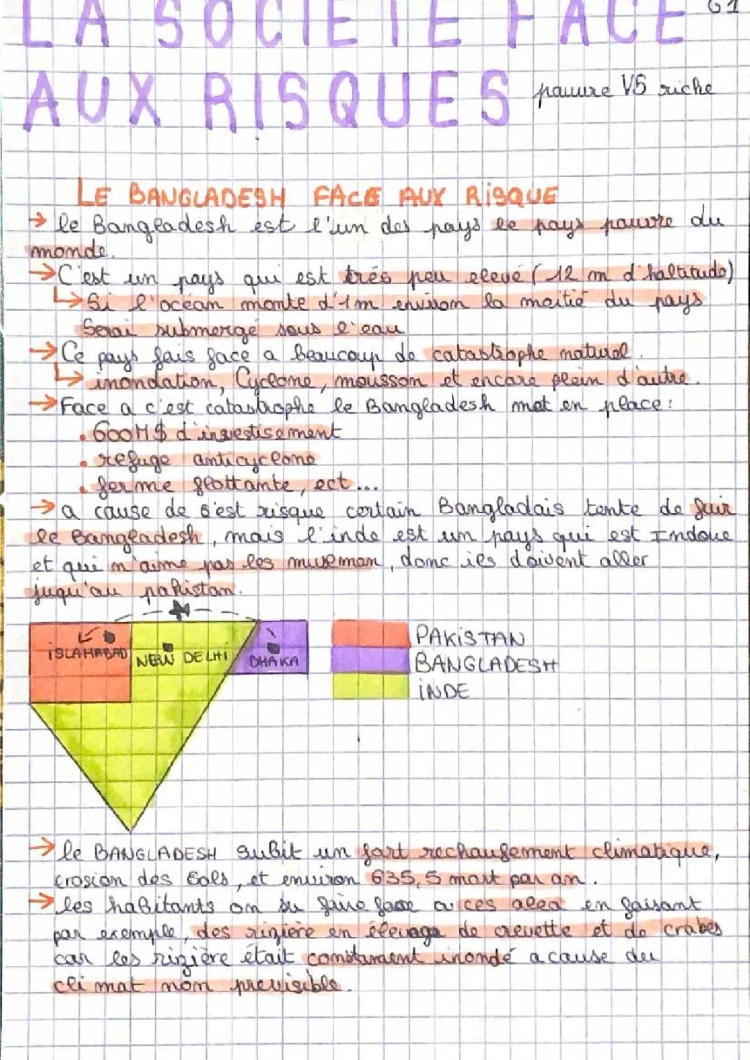 LA SOCIETE FACE G1
AUX RISQUES pauvre VS riche
LE BANGLADESH FACE AUX RiSQUE
→ le Bangladesh est l'un des pays le pays pauvre du
monde.
→ C'est un pays qui est trés peu elevé (12 m d'haltitude)
↳ Si l'océan monte d'1m environ la moitié du pays
Serai submergé sous l'eau
→ Ce pays fais face a beaucoup de catastrophe naturel.
↳ inondation, Cyclone, mousson et encore plein d'autre.
→ Face a c'est catastrophe le Bangladesh met en place:
. 600M$ d'investisement
. refuge anticyclone
. ferme flottante, ect...
→ a cause de s'est risque certain Bangladais tente de fuir
le Bangladesh, mais l'inde est un pays qui est Indoue
et qui n'aime pas les musulman, donc ils doivent aller
juqu'au pakistan.
iSLAHABAD NEW DELHI DHAKA
PAKISTAN
BANGLADESH
iNDE
→ le BANGLADESH subit un fort rechaufement climatique,
erosion des Sols, et environ 635,5 mort par an.
→ les habitants on su faire face a ces alea en faisant
par exemple, des rizière en élevage de crevette et de crabes
car les rizière était constament inondé a cause du
climat non previsible.